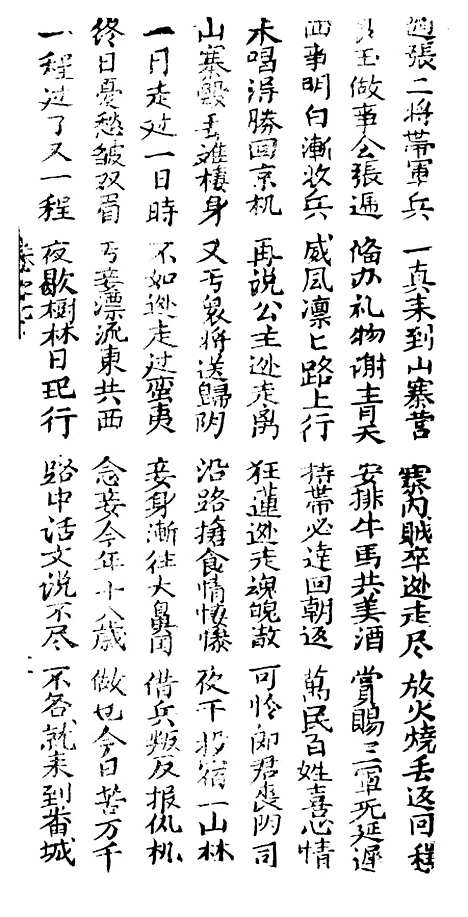 張二将帯軍兵 一真来到山寨营 寨内賊卒逊走尽 放火烧丢返回程
玉做事会張遍 俻办礼物谢青天 安排牛馬共美酒 賞賜三軍无延遲
西事明白漸收兵 威風凛匕路上行 持帯必達回朝返 萬民百姓喜心情
未唱得勝回京机 再说公主逊走离 狂蓮逊走魂魄散 可怜郎君丧阴司
山寨毁丢难棲身 又丐衆将送歸阴 沿路搶食情悽慘 夜下投宿一山林
一日走过一日時 不如逊走过蛮夷 妾身漸往大鼻国 借兵叛反报仇机
终日憂愁皱双眉 丐妾漂流東共西 念妾今年十八歳 做乜今日苦万千
一程过了又一程 夜歇樹林日玘行 路中话文说不尽 不各就来到番城